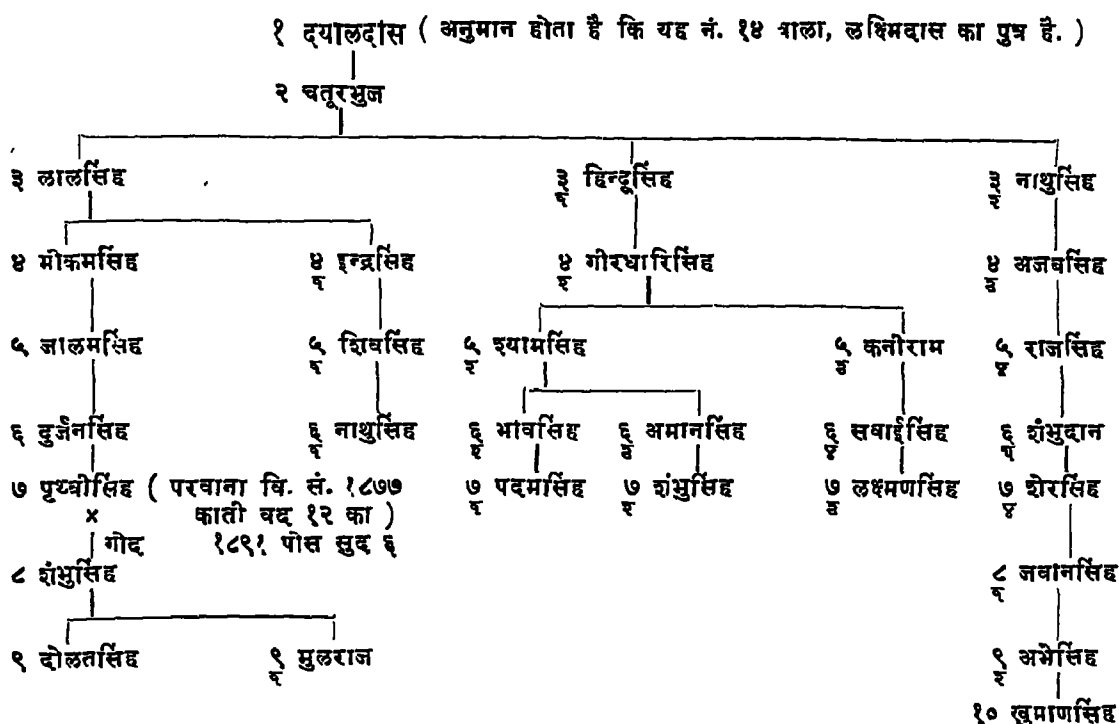 १ दयालदास ( अनुमान होता है कि यह नं. १४ वाला, लक्ष्मिदास का पुत्र है. )
२ चतूरभुज
३ लालसिंह ३ हिन्दूसिंह ३ नाथुसिंह
४ मोकमसिंह ४ इन्द्रसिंह ४ गीरधारिसिंह ४ अजबसिंह
५ जालमसिंह ५ शिवसिंह ५ श्यामसिंह ५ कनीराम ५ राजसिंह
६ दुर्जनसिंह ६ नाथुसिंह ६ भावसिंह ६ अमानसिंह ६ सवाईसिंह ६ शंभुदान
७ पृथ्वीसिंह ( परवाना वि. सं. १८७७ ७ पदमसिंह ७ शंभुसिंह ७ लक्ष्मणसिंह ७ शेरसिंह
× काती वद १२ का )
गोद १८९१ पोस सुद ६
८ शंभुसिंह ८ जवानसिंह
९ दोलतसिंह ९ मुलराज ९ अभेसिंह
१० खुमाणसिंह